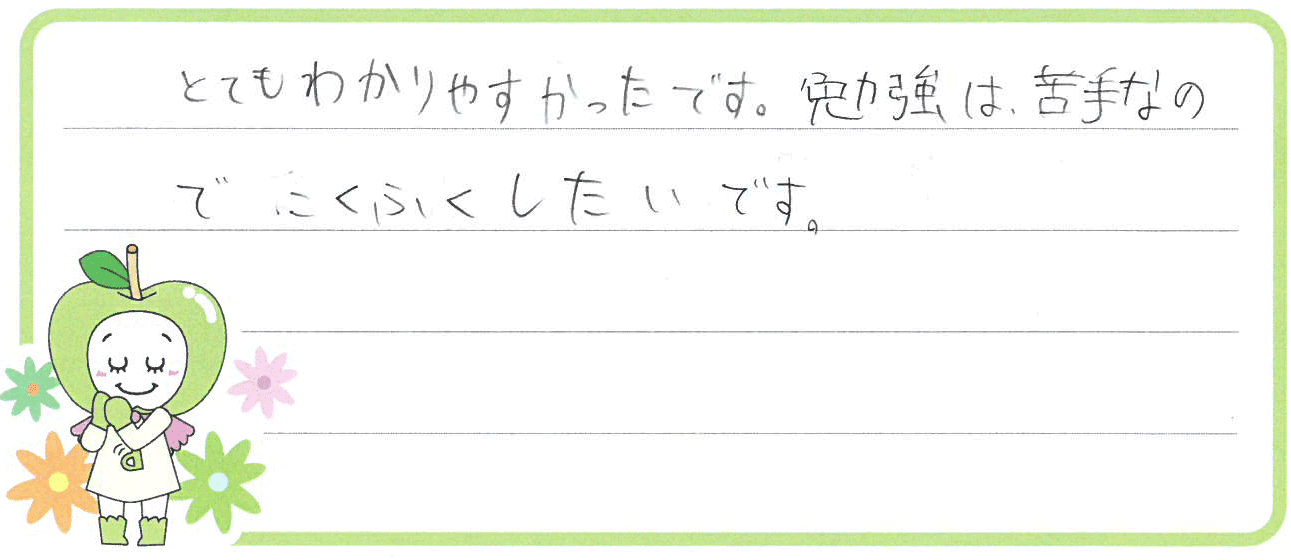 とてもわかりやすかったです。勉強は、苦手なの
で こくふくしたいです。